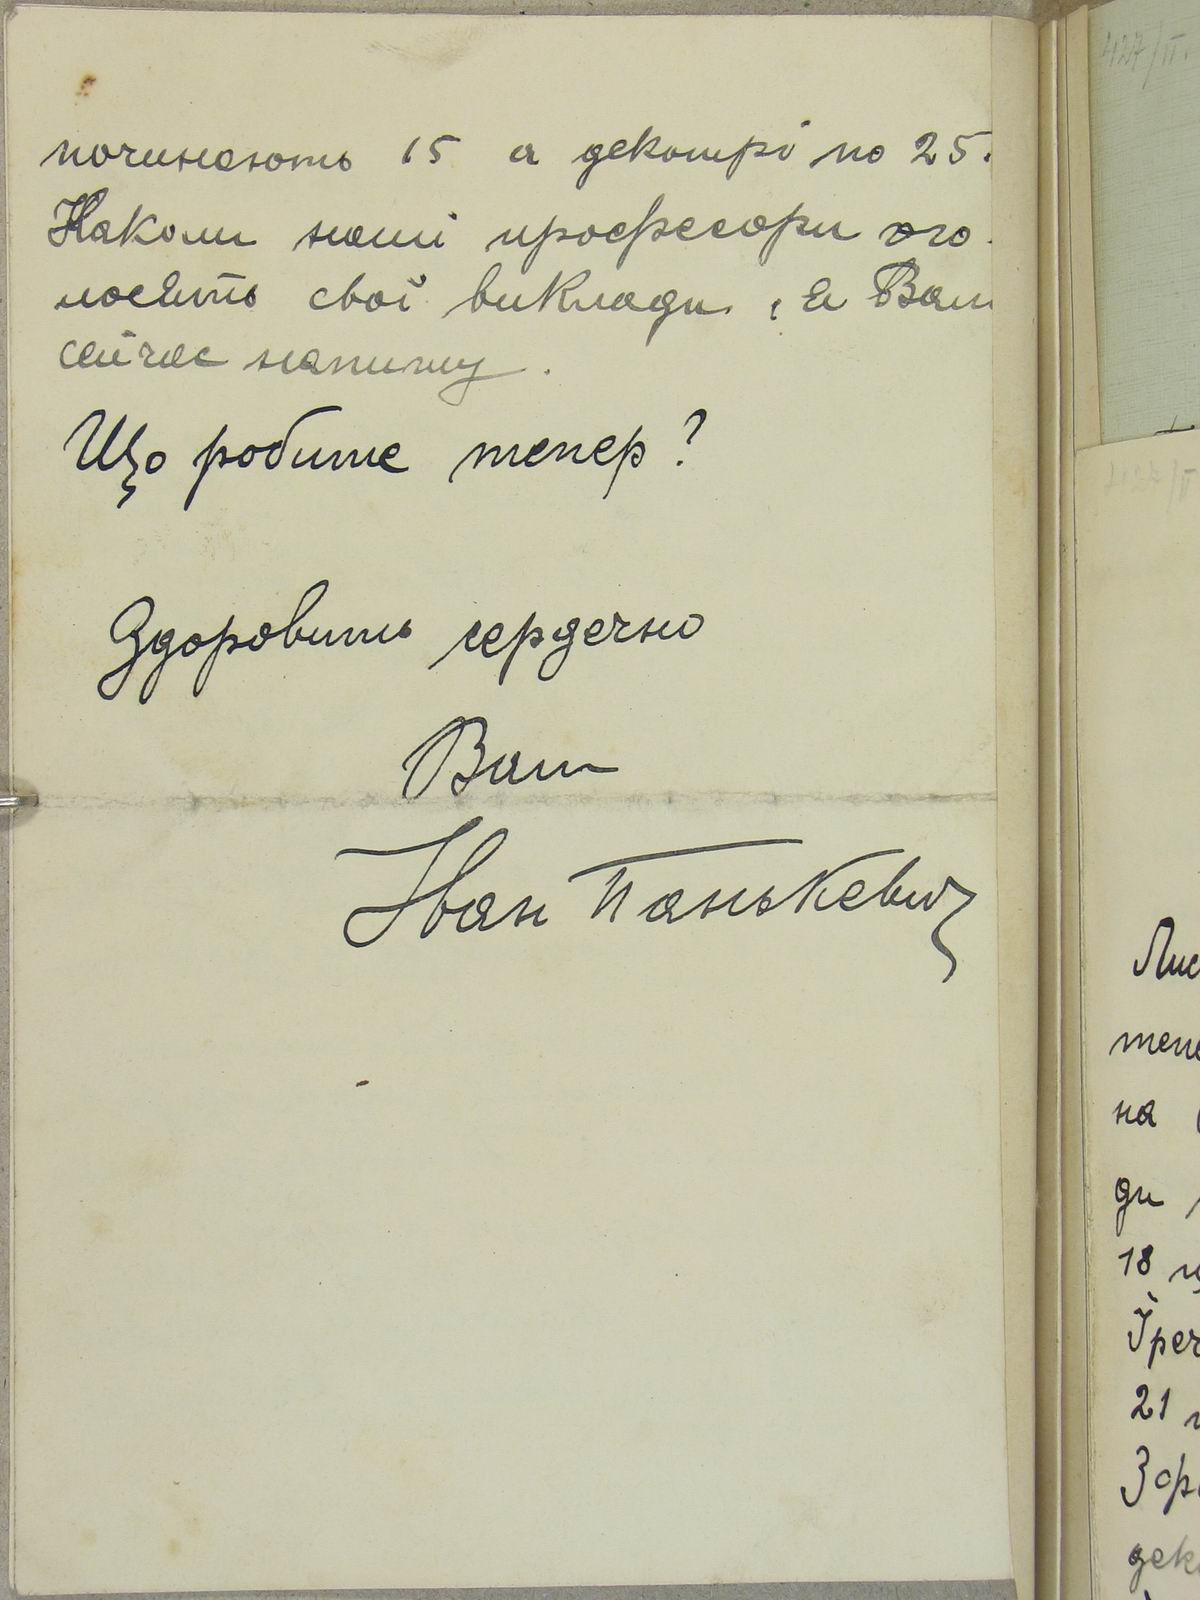 427/II.
починають 15 а декотрі по 25.
Наколи наші професори ого-
лосять свої виклади, я Вам
сейчас напишу.
Що робите тепер?
Здоровить сердечно
Ваш
Іван Панькевич
427/II
Лис
тепе
на
ди
18
Греч
21
З ор
деко